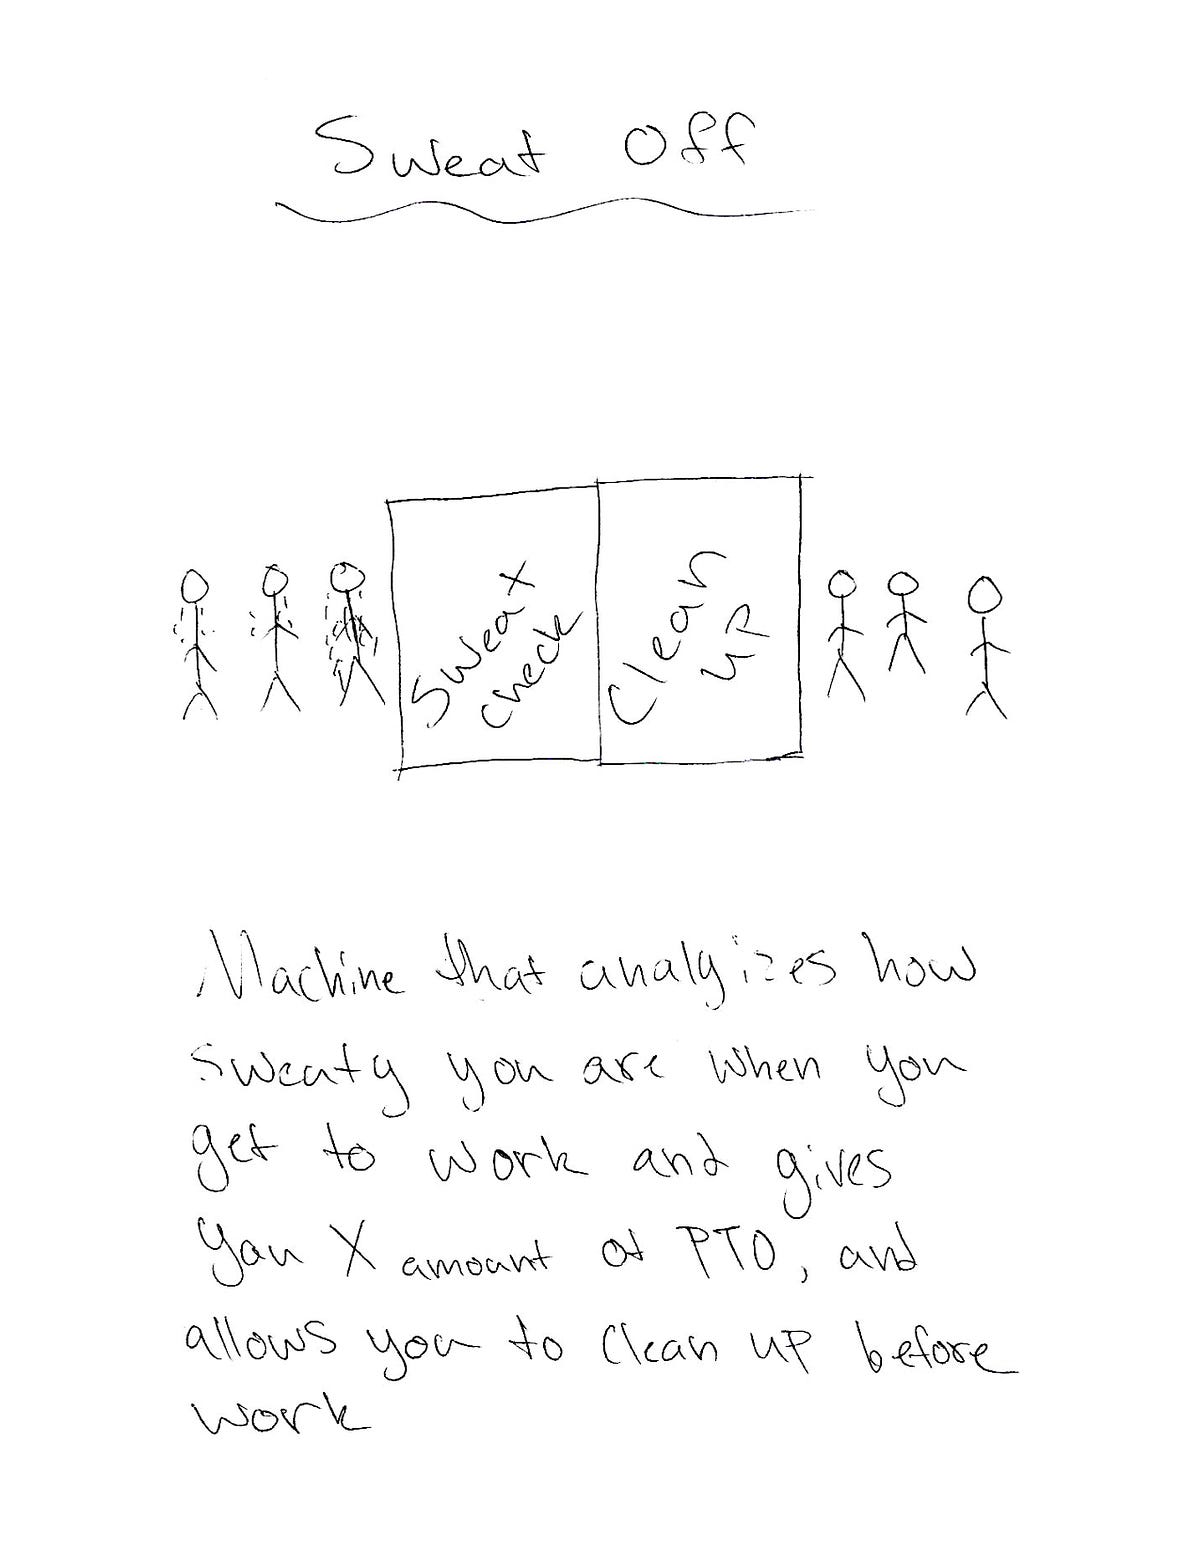 Sweat Off
Sweat
check
Clean
up
Machine that analyizes how
sweaty you are when you
get to work and gives
you X amount of PTO, and
allows you to clean up before
work